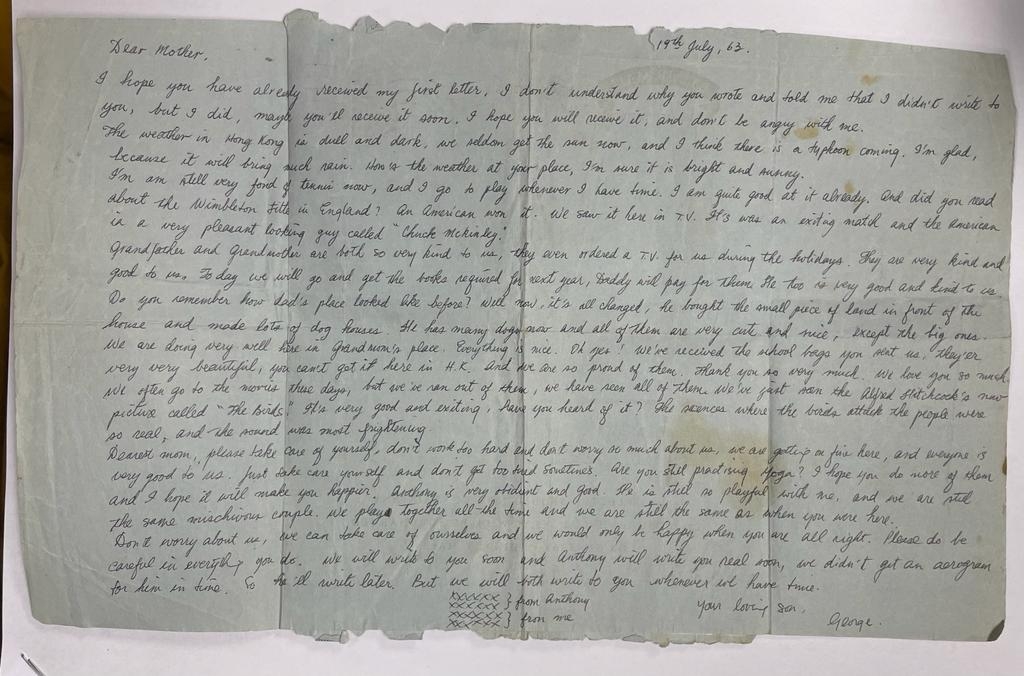 Dear Mother,
19th July, 63.
I hope you have already received my first letter, I don't understand why you wrote and told me that I didn't write to
you, but I did, maybe you'll receive it soon. I hope you will receive it, and don't be angry with me.
The weather in Hong Kong is dull and dark, we seldom get the sun now, and I think there is a typhoon coming. I'm glad,
because it will bring much rain. How's the weather at your place, I'm sure it is bright and sunny.
I'm am still very fond of tennis now, and I go to play whenever I have time. I am quite good at it already. And did you read
about the Wimbleton title in England? An American won it. We saw it here in T.V. It's was an exiting match and the American
is a very pleasant looking guy called "Chuck McKinley."
Grandfather and Grandmother are both so very kind to us, they even ordered a T.V. for us during the holidays. They are very kind and
good to us. Today we will go and get the books required for next year, Daddy will pay for them. He too is very good and kind to us.
Do you remember how dad's place looked like before? Well now, it's all changed, he bought the small piece of land in front of the
house and made lots of dog houses. He has many dogs now and all of them are very cute and nice, except the big ones.
We are doing very well here in Grandmom's place. Everything is nice. Oh yes! We've received the school bags you sent us, they'er
very very beautiful, you can't get it here in H.K. and we are so proud of them. Thank you so very much. We love you so much.
We often go to the movies these days, but we've ran out of them, we have seen all of them. We've just seen the Alfred Hitchcock's new
picture called "The Birds." It's very good and exiting, have you heard of it? The scences where the birds attack the people were
so real, and the sound was most frightening.
Dearest mom, please take care of yourself, don't work too hard and don't worry so much about us, we are getting on fine here, and everyone is
very good to us. Just take care yourself and don't get too tired sometimes. Are you still practising Yoga? I hope you do more of them
and I hope it will make you happier. Anthony is very obidient and good. He is still so playful with me, and we are still
the same mischivous couple. We play together all the time and we are still the same as when you were here.
Don't worry about us, we can take care of ourselves and we would only be happy when you are all right. Please do be
careful in everything you do. We will write to you soon and Anthony will write you real soon, we didn't get an aerogram
for him in time. So he'll write later. But we will both write to you whenever we have time.
xxxxxx
xxxxxx } from Anthony
xxxxxx
xxxxxx } from me
Your loving son,
George.